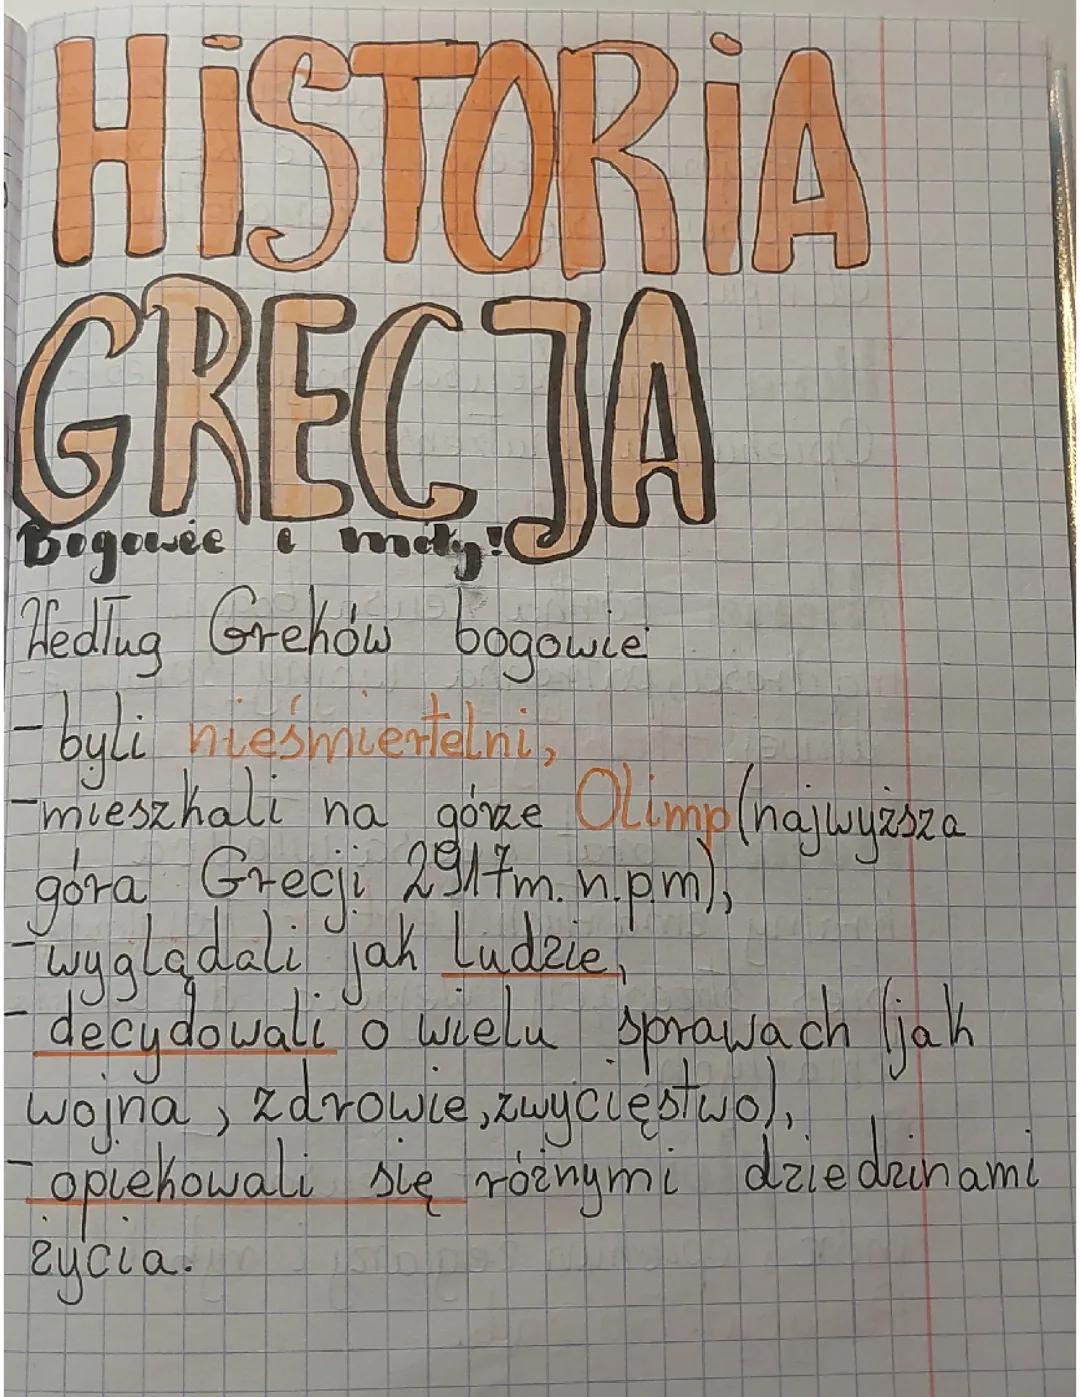 HiSTORiA
GRECJA
Bogowie i mity!
Według Greków bogowie
- byli nieśmiertelni,
- mieszkali na górze Olimp (najwyższa
góra Grecji 2917m.n.p.m),
- wyglądali jak ludzie,
- decydowali o wielu sprawach (jak
wojna, zdrowie, zwycięstwo),
- opiekowali się różnymi dziedzinami
życia.